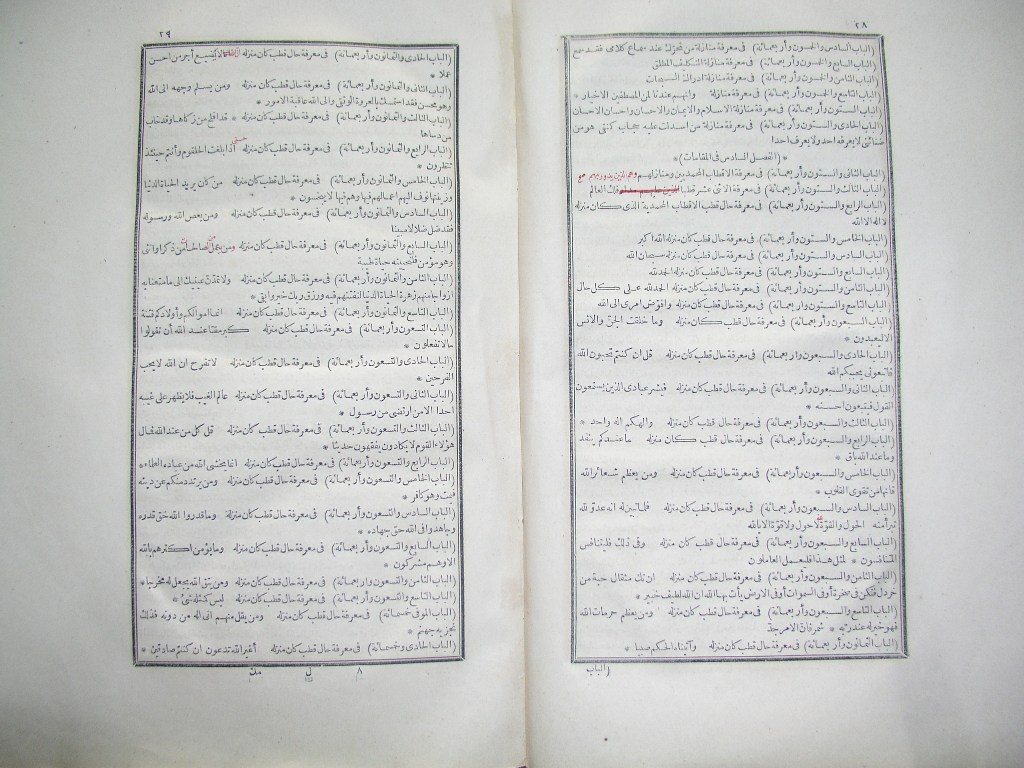 ٢٨
(الباب السادس والخمسون وأربعمائة) فى معرفة منازلة من تحرّك عند سماع كلامى فقد سمع
(الباب السابع والخمسون وأربعمائة) فى معرفة منازلة التكليف المطلق
(الباب الثامن والخمسون وأربعمائة) فى معرفة منازلة ادراك السبحات
(الباب التاسع والخمسون وأربعمائة) فى معرفة منازلة وانهم عندنا لمن المصطفين الاخيار *
(الباب الستون وأربعمائة) فى معرفة منازلة الاسلام والايمان والاحسان واحسان الاحسان
(الباب الحادى والستون وأربعمائة) فى معرفة منازلة من اسدلت عليه حجاب كنفى هو من
ضنائنى لا يعرفه احد ولا يعرف احدا
* (الفصل السادس فى المقامات) *
(الباب الثانى والستون وأربعمائة) فى معرفة الاقطاب المحمديين ومنازلهم
(الباب الثالث والستون وأربعمائة) فى معرفة الاثنى عشر قطبا فلك العالم
(الباب الرابع والستون وأربعمائة) فى معرفة حال قطب الاقطاب المحمدية الذى كان منزله
لا اله الا الله
(الباب الخامس والستون وأربعمائة) فى معرفة حال قطب كان منزله الله اكبر
(الباب السادس والستون وأربعمائة) فى معرفة حال قطب كان منزله سبحان الله
(الباب السابع والستون وأربعمائة) فى معرفة حال قطب كان منزله الحمد لله
(الباب الثامن والستون وأربعمائة) فى معرفة حال قطب كان منزله الحمد لله على كل حال
(الباب التاسع والستون وأربعمائة) فى معرفة حال قطب كان منزله وافوّض امرى الى الله
(الباب السبعون وأربعمائة) فى معرفة حال قطب كان منزله وما خلقت الجنّ والانس
الا ليعبدون *
(الباب الحادى والسبعون وأربعمائة) فى معرفة حال قطب كان منزله قل ان كنتم تحبون الله
فاتبعونى يحببكم الله
(الباب الثانى والسبعون وأربعمائة) فى معرفة حال قطب كان منزله فبشر عبادى الذين يستمعون
القول فيتبعون احسنه *
(الباب الثالث والسبعون وأربعمائة) فى معرفة حال قطب كان منزله والهكم اله واحد *
(الباب الرابع والسبعون وأربعمائة) فى معرفة حال قطب كان منزله ما عندكم ينفد
وما عند الله باق *
(الباب الخامس والسبعون وأربعمائة) فى معرفة حال قطب كان منزله ومن يعظم شعائر الله
فانها من تقوى القلوب *
(الباب السادس والسبعون وأربعمائة) فى معرفة حال قطب كان منزله فلما تبين له انه عدوّ لله
تبرأ منه الحول والقوّة لا حول ولا قوّة الا بالله
(الباب السابع والسبعون وأربعمائة) فى معرفة حال قطب كان منزله وفى ذلك فليتنافس
المتنافسون * لمثل هذا فليعمل العاملون
(الباب الثامن والسبعون وأربعمائة) فى معرفة حال قطب كان منزله ان تك مثقال حبة من
خردل فتكن فى صخرة أو فى السموات أو فى الارض يأت بها الله ان الله لطيف خبير *
(الباب التاسع والسبعون وأربعمائة) فى معرفة حال قطب كان منزله ومن يعظم حرمات الله
فهو خير له عند ربه *
(الباب الثمانون وأربعمائة) فى معرفة حال قطب كان منزله وآتيناه الحكم صبيا *
(الباب
٢٩
(الباب الحادى والثمانون وأربعمائة) فى معرفة حال قطب كان منزله لا نضيع أجر من احسن
عملا *
(الباب الثانى والثمانون وأربعمائة) فى معرفة حال قطب كان منزله ومن يسلم وجهه الى الله
وهو محسن فقد استمسك بالعروة الوثقى والى الله عاقبة الامور *
(الباب الثالث والثمانون وأربعمائة) فى معرفة حال قطب كان منزله * قد افلح من زكاها وقد خاب
من دساها
(الباب الرابع والثمانون وأربعمائة) فى معرفة حال قطب كان منزله اذا بلغت الحلقوم وأنتم حينئذ
تنظرون *
(الباب الخامس والثمانون وأربعمائة) فى معرفة حال قطب كان منزله من كان يريد الحياة الدنيا
وزينتها نوف اليهم اعمالهم فيها وهم فيها لا يبخسون *
(الباب السادس والثمانون وأربعمائة) فى معرفة حال قطب كان منزله ومن يعص الله ورسوله
فقد ضل ضلالا مبينا
(الباب السابع والثمانون وأربعمائة) فى معرفة حال قطب كان منزله ومن يعمل صالحا من ذكر او انثى
وهو مؤمن فلنحيينه حياة طيبة
(الباب الثامن والثمانون وأربعمائة) فى معرفة حال قطب كان منزله ولا تمدّنّ عينيك الى ما متعنا به
ازواجا منهم زهرة الحياة الدنيا لنفتنهم فيه ورزق ربك خير وابقى *
(الباب التاسع والثمانون وأربعمائة) فى معرفة حال قطب كان منزله انما اموالكم وأولادكم فتنة
(الباب التسعون وأربعمائة) فى معرفة حال قطب كان منزله كبر مقتا عند الله أن تقولوا
ما لا تفعلون *
(الباب الحادى والتسعون وأربعمائة) فى معرفة حال قطب كان منزله لا تفرح ان الله لا يحب
الفرحين *
(الباب الثانى والتسعون وأربعمائة) فى معرفة حال قطب كان منزله عالم الغيب فلا يظهر على غيبه
احدا الا من ارتضى من رسول *
(الباب الثالث والتسعون وأربعمائة) فى معرفة حال قطب كان منزله قل كل من عند الله فمال
هؤلاء القوم لا يكادون يفقهون حديثا *
(الباب الرابع والتسعون وأربعمائة) فى معرفة حال قطب كان منزله انما يخشى الله من عباده العلماء *
(الباب الخامس والتسعون وأربعمائة) فى معرفة حال قطب كان منزله ومن يرتدد منكم عن دينه
فيمت وهو كافر *
(الباب السادس والتسعون وأربعمائة) فى معرفة حال قطب كان منزله وما قدروا الله حق قدره
وجاهدوا فى الله حق جهاده *
(الباب السابع والتسعون وأربعمائة) فى معرفة حال قطب كان منزله وما يؤمن اكثرهم بالله
الا وهم مشركون *
(الباب الثامن والتسعون وأربعمائة) فى معرفة حال قطب كان منزله ومن يتق الله يجعل له مخرجا *
(الباب التاسع والتسعون وأربعمائة) فى معرفة حال قطب كان منزله ليس كمثله شئ *
(الباب الموفى خمسمائة) فى معرفة حال قطب كان منزله ومن يقل منهم انى اله من دونه فذلك
نجزيه جهنم *
(الباب الحادى وخمسمائة) فى معرفة حال قطب كان منزله أغير الله تدعون ان كنتم صادقين *
٨ ل مك